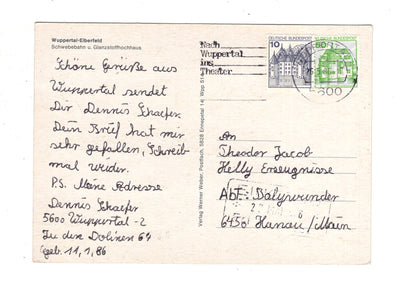 Wuppertal-Elberfeld
Schwebebahn u. Glanzstoffhochhaus
Schöne Grüße aus
Wuppertal sendet
Dir Dennis Schaefer.
Dein Brief hat mir
sehr gefallen, Schreib
mal wieder.
P.S. Meine Adresse
Dennis Schaefer
5600 Wuppertal -2
In den Dolinen 64
geb. 11,1,86
Verlag Werner Weber, Postfach, 5828 Ennepetal 14
Nach
Wuppertal
ins
Theater
DEUTSCHE BUNDESPOST
10
DEUTSCHE BUNDESPOST
50
5600
An
Theodor Jacob
Kelly Ereugnisse
Abt:
6450 Hanau/Main